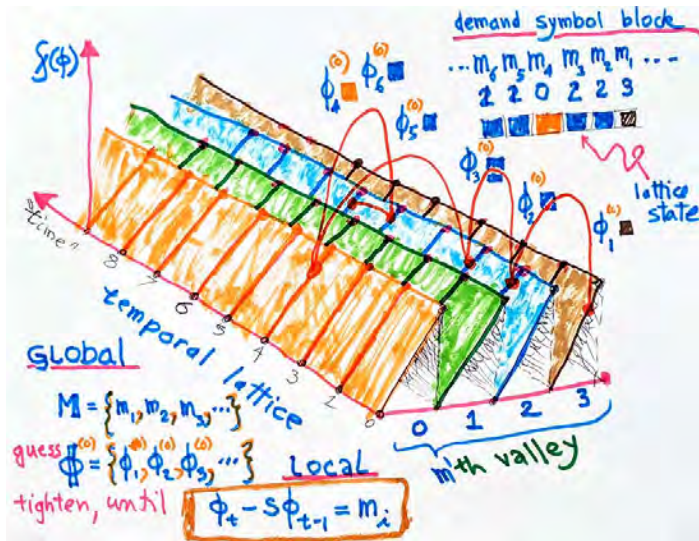 demand symbol block
... m₆ m₅ m₄ m₃ m₂ m₁ ...
2 2 0 2 2 3
f(ϕ)
ϕ₄⁽⁰⁾ ϕ₆⁽⁰⁾
ϕ₅⁽⁰⁾
ϕ₃⁽⁰⁾
ϕ₂⁽⁰⁾
ϕ₁⁽⁰⁾
lattice
state
8 7 6 5 4 3 2 0
temporal lattice
0 1 2 3
m'th valley
GLOBAL
M = {m₁, m₂, m₃, ...}
guess Φ⁽⁰⁾ = {ϕ₁⁽⁰⁾, ϕ₂⁽⁰⁾, ϕ₃⁽⁰⁾, ...}
LOCAL
tighten, until ϕₜ - sϕₜ₋₁ = mᵢ